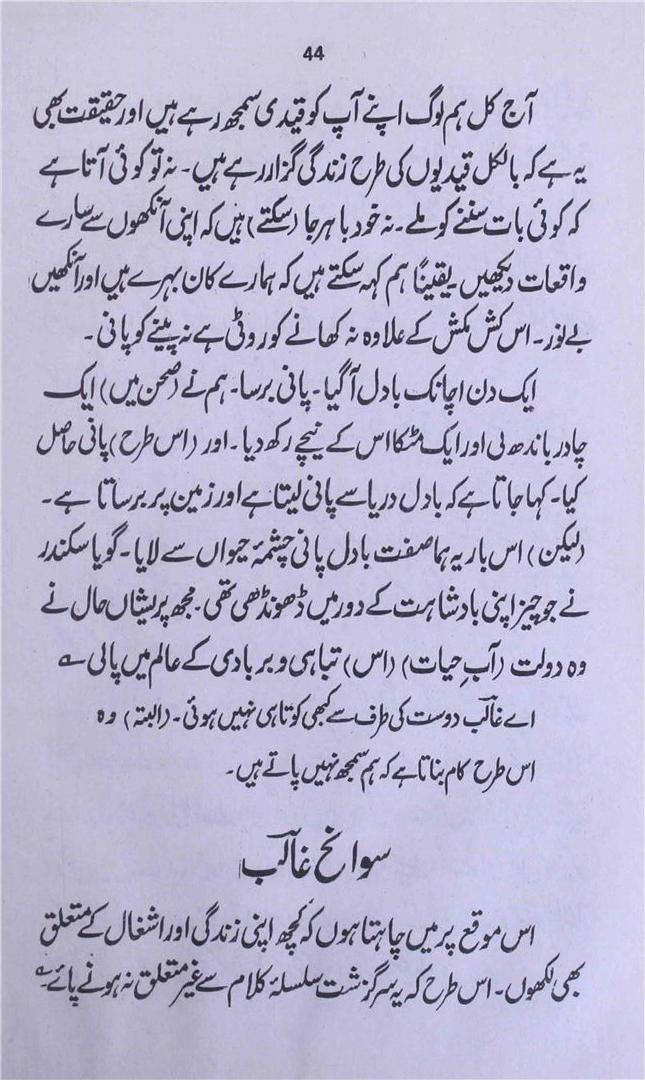 44
آج کل ہم لوگ اپنے آپ کو قیدی سمجھ رہے ہیں اور حقیقت بھی
یہ ہے کہ بالکل قیدیوں کی طرح زندگی گزار رہے ہیں۔ نہ تو کوئی آتا ہے
کہ کوئی بات سننے کو ملے۔ نہ خود باہر جا (سکتے) ہیں کہ اپنی آنکھوں سے سارے
واقعات دیکھیں یقیناً ہم کہہ سکتے ہیں کہ ہمارے کان بہرے ہیں اور آنکھیں
بے نور۔ اس کش مکش کے علاوہ نہ کھانے کو روٹی ہے نہ پینے کو پانی۔
ایک دن اچانک بادل آگیا۔ پانی برسا۔ ہم نے (صحن میں) ایک
چادر باندھ لی اور ایک مٹکا اس کے نیچے رکھ دیا۔ اور (اس طرح) پانی حاصل
کیا۔ کہا جاتا ہے کہ بادل دریا سے پانی لیتا ہے اور زمین پر برساتا ہے۔
(لیکن) اس بار یہ ہما صفت بادل پانی چشمۂ حیواں سے لایا۔ گویا سکندر
نے جو چیز اپنی بادشاہت کے دور میں ڈھونڈھی تھی۔ مجھ پریشاں حال نے
وہ دولت (آبِ حیات) (اس) تباہی و بربادی کے عالم میں پالی ؎
اے غالبؔ دوست کی طرف سے کبھی کوتاہی نہیں ہوئی۔ (البتہ) وہ
اس طرح کام بناتا ہے کہ ہم سمجھ نہیں پاتے ہیں۔
سوانح غالبؔ
اس موقع پر میں چاہتا ہوں کہ کچھ اپنی زندگی اور اشغال کے متعلق
بھی لکھوں۔ اس طرح کہ یہ سرگزشت سلسلۂ کلام سے غیر متعلق نہ ہونے پائے۔؎